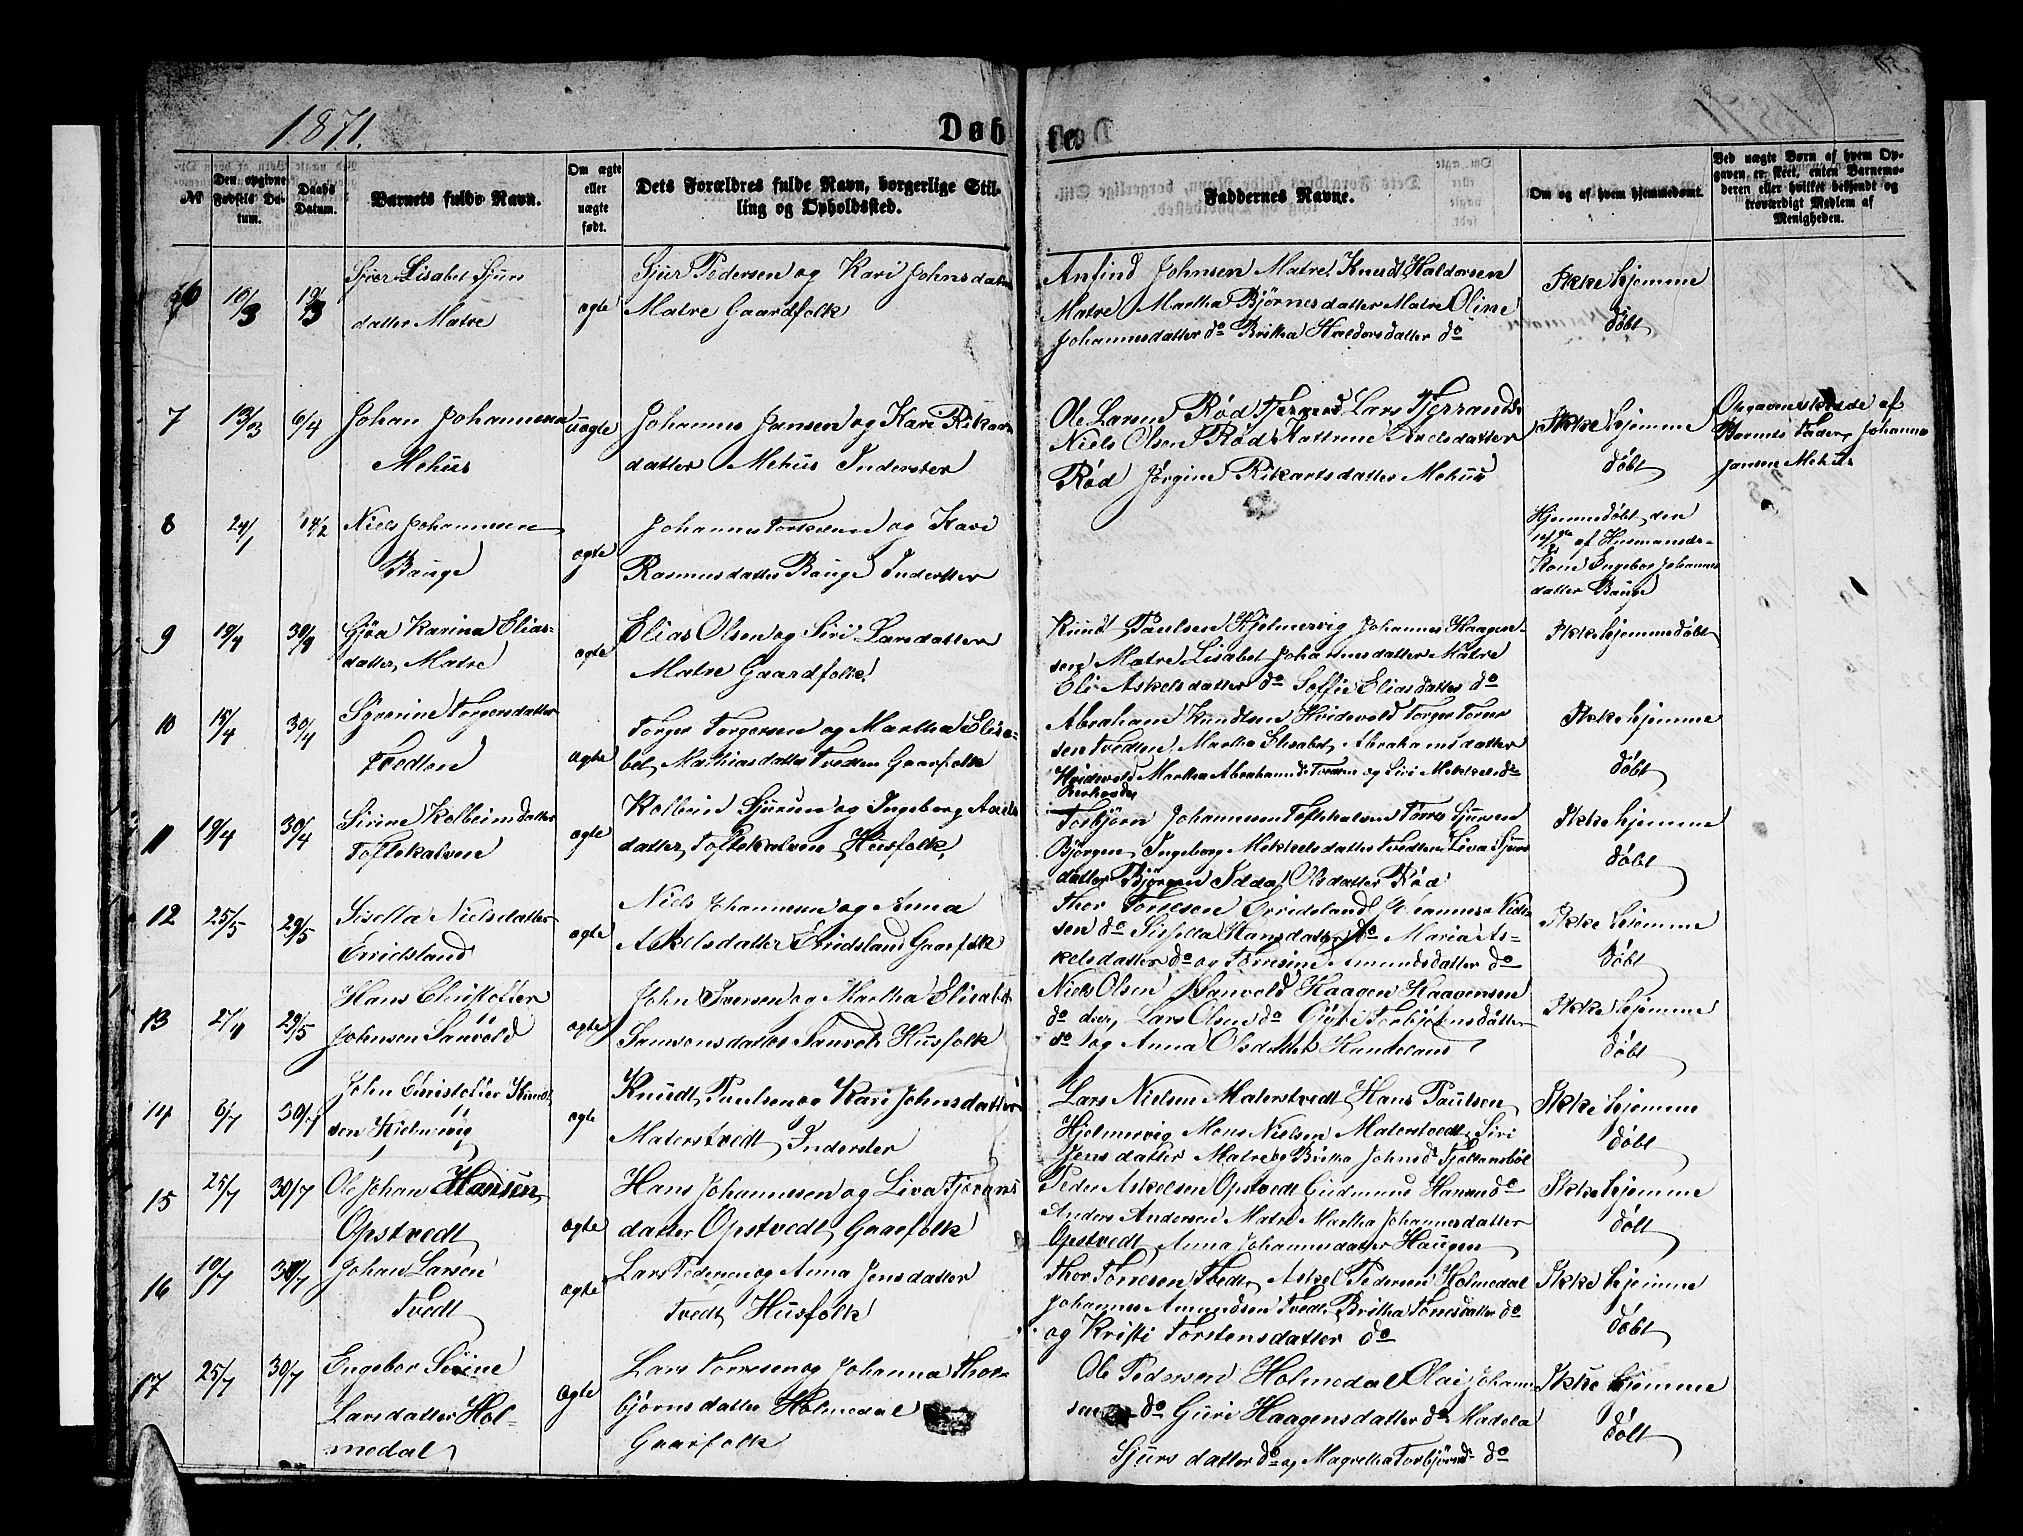 1871.
Døb
te.
№
Den opgivne Fødsels Da-
tum.
Daabs
Datum.
Barnets fulde Navn.
Om ægte
eller
uægte
født.
Dets Forældres fulde Navn, borgerlige Stil-
ling og Opholdssted.
Faddernes Navne.
Om og af hvem hjemmedøbt.
Ved uægte Børn af hvem Op-
gaven er skeet, enten Barnemo-
deren eller hvilket bekjendt og
troværdigt Medlem af
Menigheden.
6
10/3
19/3
Sjør Lisabet Sjurs
datter Matre
ægte
Sjur Pedersen og Kari Johnsdatter
Matre Gaardfolk
Anfind Johnsen Matre Knudt Haldorsen
Matre Martha Bjørnesdatter Matre Oline
Johannesdatter do Britha Haldorsdatter do
Ikke hjemme
døbt
7
13/3
6/4
Johan Johannesen
Mehus
uægte
Johannes Jansen og Kari Rikarts
datter Mehus Inderster
Ole Larsen Rød Lars
Niels Olsen Rød Nielsdatter
Rød Jørgine Rikartsdatter Mehus
Ikke hjemme
døbt
af
Barnets Fader Johannes
Jansen Mehus
8
24/1
14/2
Niels Johannesen
Bauge
ægte
Johannes Torkelsen og Kari
Rasmusdatter Bauge Inderster
Hjemmedøbt den
14/2 af Husmands-
Kone Engebor Johannes
datter Bauge
9
19/4
30/4
Gjøa Karina Elias-
datter Matre
ægte
Elias Olsen og Siri Larsdatter
Matre Gaardfolk
Knudt Paulsen Hjelmervig Johannes Haagen-
sen Matre Lisabet Johannesdatter Matre
Eli Askelsdatter do Soffie Eliasdatter do
Ikke hjemmedøbt
10
15/4
30/4
Torgersdatter
Tvedten
ægte
Torger Torgersen og Martha Elisa-
bet Mathiasdatter Tvedten Gaarfolk
Abraham Knudtsen Hvidevold Torger Torger
sen Tvedten Martha Elisabet Abrahamsdatter
Hvidevold Martha Abrahamsd Tvedten og Siri Mikkelsd
11
19/4
30/4
Sirine Kolbeinsdatter
Toftekalven
ægte
Kolbein Sjursen og Ingeborg Axels
datter Toftekalven Husfolk
Torbjørn Johannesen Toftekalven Torres Sjursen
Bjørgen Ingeborg Mikkelsdatter Tvedten Liva Sjurs
datter Bjørgen Idda Olsdatter Rød
Ikke hjemme
døbt
12
25/5
29/5
Sisella Nielsdatter
Erridsland
ægte
Niels Johannesen og Anna
Askelsdatter Erridsland Gaarfolk
Thor Torresen Erridsland Johannes
sen do Sissella Hansdatter do Maria As-
kelsdatter do og Torresine Amundsdatter do
Ikke hjemme
døbt
13
27/4
29/5
Hans Christoffer
Johnsen Sanvold
ægte
John Iversen og Martha Elisabet
Samsonsdatter Sanvold Husfolk
Niels Olsen Sanvold Haagen Haavensen
do Lars Olsen do Torbjørnsdatter
do og Anna Olsdatter Handeland
Ikke hjemme
døbt
14
6/7
30/7
John Christoffer Knudt
sen Hjelmervig
ægte
Knudt Paulsen og Kari Johnsdatter
Materstvedt Inderster
Lars Nielsen Materstvedt Hans Paulsen
Hjelmervig Mons Nielsen Materstvedt Siri
Jensdatter Matre og Britha Johnsd
Ikke hjemme
døbt
15
25/7
30/7
Ole Johan Hansen
Opstvedt
ægte
Hans Johannesen og Liva Tjerans
datter Opstvedt Gaarfolk
Peder Askelsen Opstvedt Gudmund Hansen do
Anders Andersen Matre Martha Johannesdatter
Opstvedt Anna Johannesdatter Haugen
Ikke hjemme
døbt
16
10/7
30/7
Johan Larsen
Tvedt
ægte
Lars Pedersen og Anna Jensdatter
Tvedt Husfolk
Thor Torresen Tvedt Askel Pedersen Holmedal
Johannes Amundsen Tvedt Britha Torresdatter do
og Kristi Torstensdatter do
Ikke hjemme
døbt
17
25/7
30/7
Engebor Serine
Larsdatter Hol-
medal
ægte
Lars Torresen og Johanna Thor-
bjørnsdatter Holmedal
Gaarfolk
Ole Pedersen Holmedal Olai Johanne
sen do Guri Haagensdatter do Madela
Sjurs datter do og Magretha Torbjørnsd do
Ikke hjemme
døbt